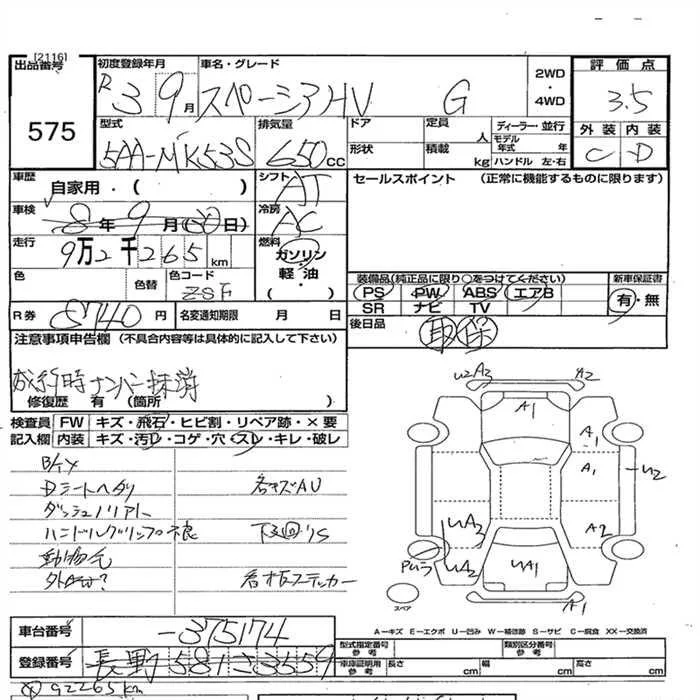 [2116]
出品番号
575
初度登録年月
R3 9月
車名・グレード
スペーシアHV G
2WD
・
4WD
評価点
3.5
外装 内装
C D
型式
5AA-MK53S
排気量
650cc
ドア
形状
定員
人
積載
kg
ディーラー・並行
モデル年式 年
ハンドル 左・右
車歴
自家用・( )
シフト
AT
車検
8年9月(30日)
冷房
AC
走行
9万2千265km
燃料
ガソリン
軽・油
( )
色
色替
色コード
ZSF
R券
8740円
名変通知期限 月 日
セールスポイント (正常に機能するものに限ります)
装備品(純正品に限り○をつけてください)
新車保証書
PS PW ABS エアB
有・無
SR ナビ TV
後日品
取 保
注意事項申告欄 (不具合内容等は具体的に記入して下さい)
成約時ナンバー抹消
修復歴 有 (箇所 )
検査員
記入欄
FW キズ・飛石・ヒビ割・リペア跡・×要
内装 キズ・汚レ・コゲ・穴・スレ・キレ・破レ
Dシートヘタリ
ハンドルグリップ不良
動物毛
各キズAU
下廻りS
看板ステッカー
U2 A3
A2
A1
A1
A1
U2
A2
UA3
UA2
UA1
A1
スペア
A―キズ E―エクボ U―凹み W―補修跡 S―サビ C―腐食 XX―交換済
車台番号
-375174
登録番号
長野 581 さ 3559
型式指定番号
参考
類別区分番号
参考
車庫証明用
参考
長さ cm
幅 cm
高さ cm
92265km